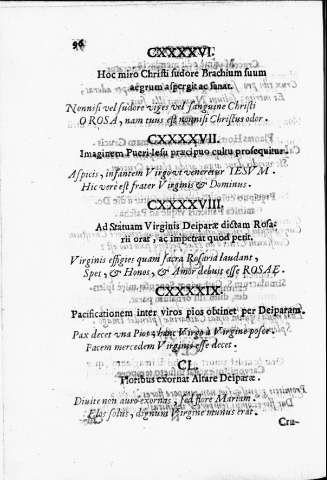 96
CXXXXVI.
Hoc miro Christi sudore Brachium suum
aegrum aspergit ac sanat.
Nonnisi vel sudore viges vel sanguine Christi
O ROSA, nam tuus est nonnisi Christus odor.
CXXXXVII.
Imaginem Pueri Iesu præcipuo cultu prosequitur.
Aspicis, infantem Virgo vt veneretur IESVM.
Hic verè est frater Virginis & Dominus.
CXXXXVIII.
Ad Statuam Virginis Deiparæ dictam Rosa-
rii orat, ac impetrat quod petit.
Virginis effigies quam sacra Rosaria laudant,
Spes, & Honos, & Amor debuit esse ROSAE.
CXXXXIX.
Pacificationem inter viros pios obtinet per Deiparam.
Pax decet vna Pios, hanc Virgo à Virgine poscit.
Pacem mercedem Virginis esse decet.
CL.
Floribus exornat Altare Deiparæ.
Diuite non auro exornas, sed flore Mariam.
Flos solus, dignum Virgine munus erat.
Cru-